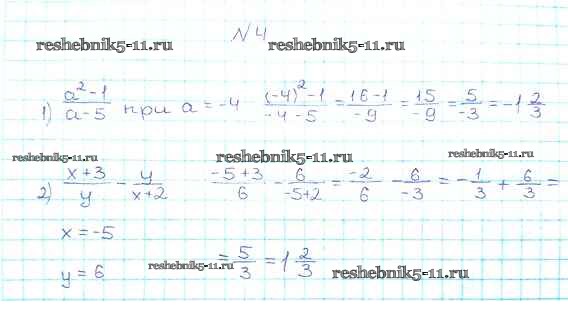 №4
reshebnik5-11.ru reshebnik5-11.ru
1) (a² - 1)/(a - 5) при a = -4 ((-4)² - 1)/(-4 - 5) = (16 - 1)/(-9) = 15/(-9) = 5/(-3) = -1 2/3
reshebnik5-11.ru reshebnik5-11.ru reshebnik5-11.ru
2) (x + 3)/y - y/(x + 2) (-5 + 3)/6 - 6/(-5 + 2) = (-2)/6 - 6/(-3) = -1/3 + 6/3 =
x = -5
= 5/3 = 1 2/3
y = 6 reshebnik5-11.ru reshebnik5-11.ru